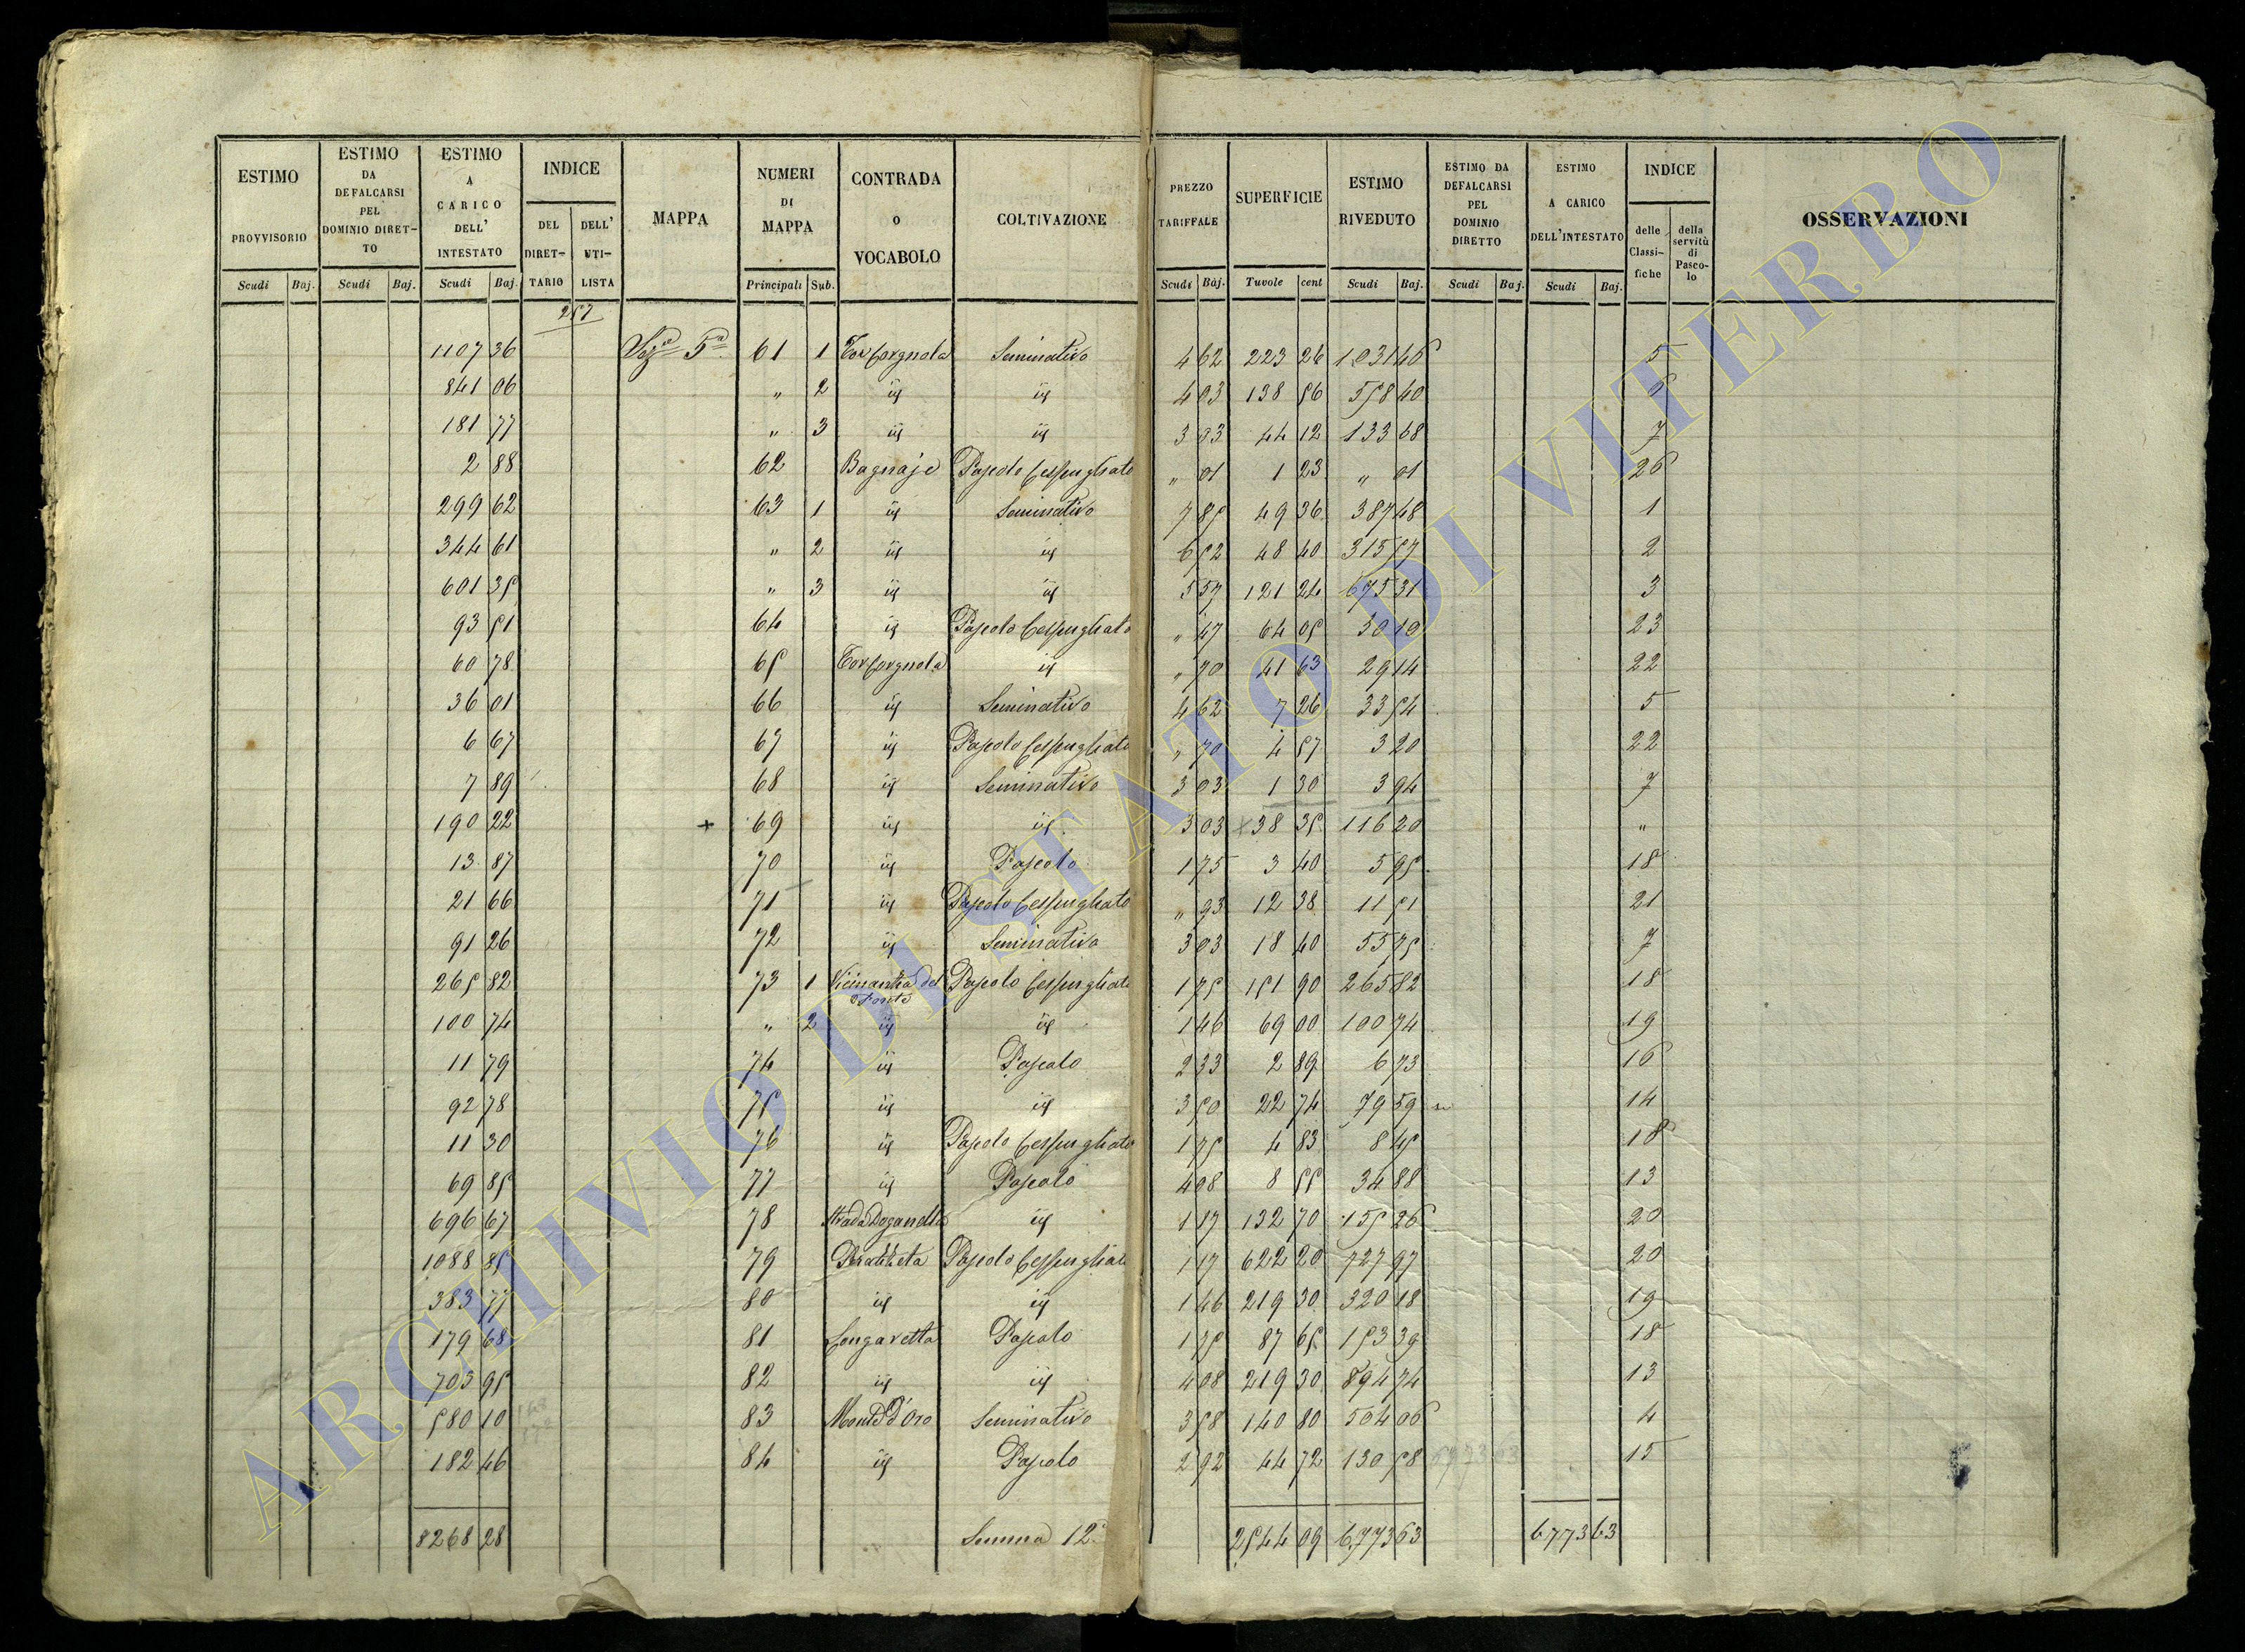 ESTIMO PROVVISORIO | ESTIMO DA DEFALCARSI PEL DOMINIO DIRETTO | ESTIMO A CARICO DELL' INTESTATO | INDICE | MAPPA | NUMERI DI MAPPA | CONTRADA O VOCABOLO | COLTIVAZIONE | PREZZO TARIFFALE | SUPERFICIE | ESTIMO RIVEDUTO | ESTIMO DA DEFALCARSI PEL DOMINIO DIRETTO | ESTIMO A CARICO DELL'INTESTATO | INDICE | OSSERVAZIONI
DEL DIRETTARIO | DELL' UTILISTA | delle Classifiche | della servitù di Pascolo
Scudi | Baj. | Scudi | Baj. | Scudi | Baj. | Principali | Sub. | Scudi | Baj. | Tavole | cent | Scudi | Baj. | Scudi | Baj. | Scudi | Baj.
257
1107 36 | Sez.e 5a | 61 | 1 | Torforgnola | Seminativo | 4 62 | 223 26 | 1031 46 | 5
841 06 | " | 2 | id | id | 4 03 | 138 56 | 558 40 | 6
181 77 | " | 3 | id | id | 3 03 | 44 12 | 133 68 | 7
2 88 | 62 | Bagnaje | Pascolo Cespugliato | " 01 | 1 23 | " 01 | 26
299 62 | 63 | 1 | id | Seminativo | 7 85 | 49 36 | 387 48 | 1
344 61 | " | 2 | id | id | 6 52 | 48 40 | 315 57 | 2
601 35 | " | 3 | id | id | 5 57 | 121 24 | 675 31 | 3
93 51 | 64 | id | Pascolo Cespugliato | " 47 | 64 05 | 30 10 | 23
60 78 | 65 | Torforgnola | id | " 70 | 41 63 | 29 14 | 22
36 01 | 66 | id | Seminativo | 4 62 | 7 26 | 33 54 | 5
6 67 | 67 | id | Pascolo Cespugliato | " 70 | 4 57 | 3 20 | 22
7 89 | 68 | id | Seminativo | 3 03 | 1 30 | 3 94 | 7
190 22 | + | 69 | id | id | 3 03 | × 38 35 | 116 20 | "
13 87 | 70 | id | Pascolo | 1 75 | 3 40 | 5 95 | 18
21 66 | 71 | id | Pascolo Cespugliato | " 93 | 12 38 | 11 51 | 21
91 26 | 72 | id | Seminativo | 3 03 | 18 40 | 55 75 | 7
265 82 | 73 | 1 | Vicinanza del Ponte | Pascolo Cespugliato | 1 75 | 151 90 | 265 82 | 18
100 74 | " | 2 | id | id | 1 46 | 69 00 | 100 74 | 19
11 79 | 74 | id | Pascolo | 2 33 | 2 89 | 6 73 | 16
92 78 | 75 | id | id | 3 50 | 22 74 | 79 59 | 14
11 30 | 76 | id | Pascolo Cespugliato | 1 75 | 4 83 | 8 45 | 18
69 85 | 77 | id | Pascolo | 4 08 | 8 55 | 34 88 | 13
696 67 | 78 | Strada Doganella | id | 1 17 | 132 70 | 155 26 | 20
1088 85 | 79 | Pratheta | Pascolo Cespugliato | 1 17 | 622 20 | 727 97 | 20
383 77 | 80 | id | id | 1 46 | 219 30 | 320 18 | 19
179 68 | 81 | Longaretta | Pascolo | 1 75 | 87 65 | 153 39 | 18
703 95 | 82 | id | id | 4 08 | 219 30 | 894 74 | 13
580 10 | 83 | Monte d'Oro | Seminativo | 3 58 | 140 80 | 504 06 | 4
182 46 | 84 | id | Pascolo | 2 92 | 44 72 | 130 58 | 15
8268 28 | Somma 12 | 2544 09 | 6773 63 | 6773 63
ARCHIVIO DI STATO DI VITERBO